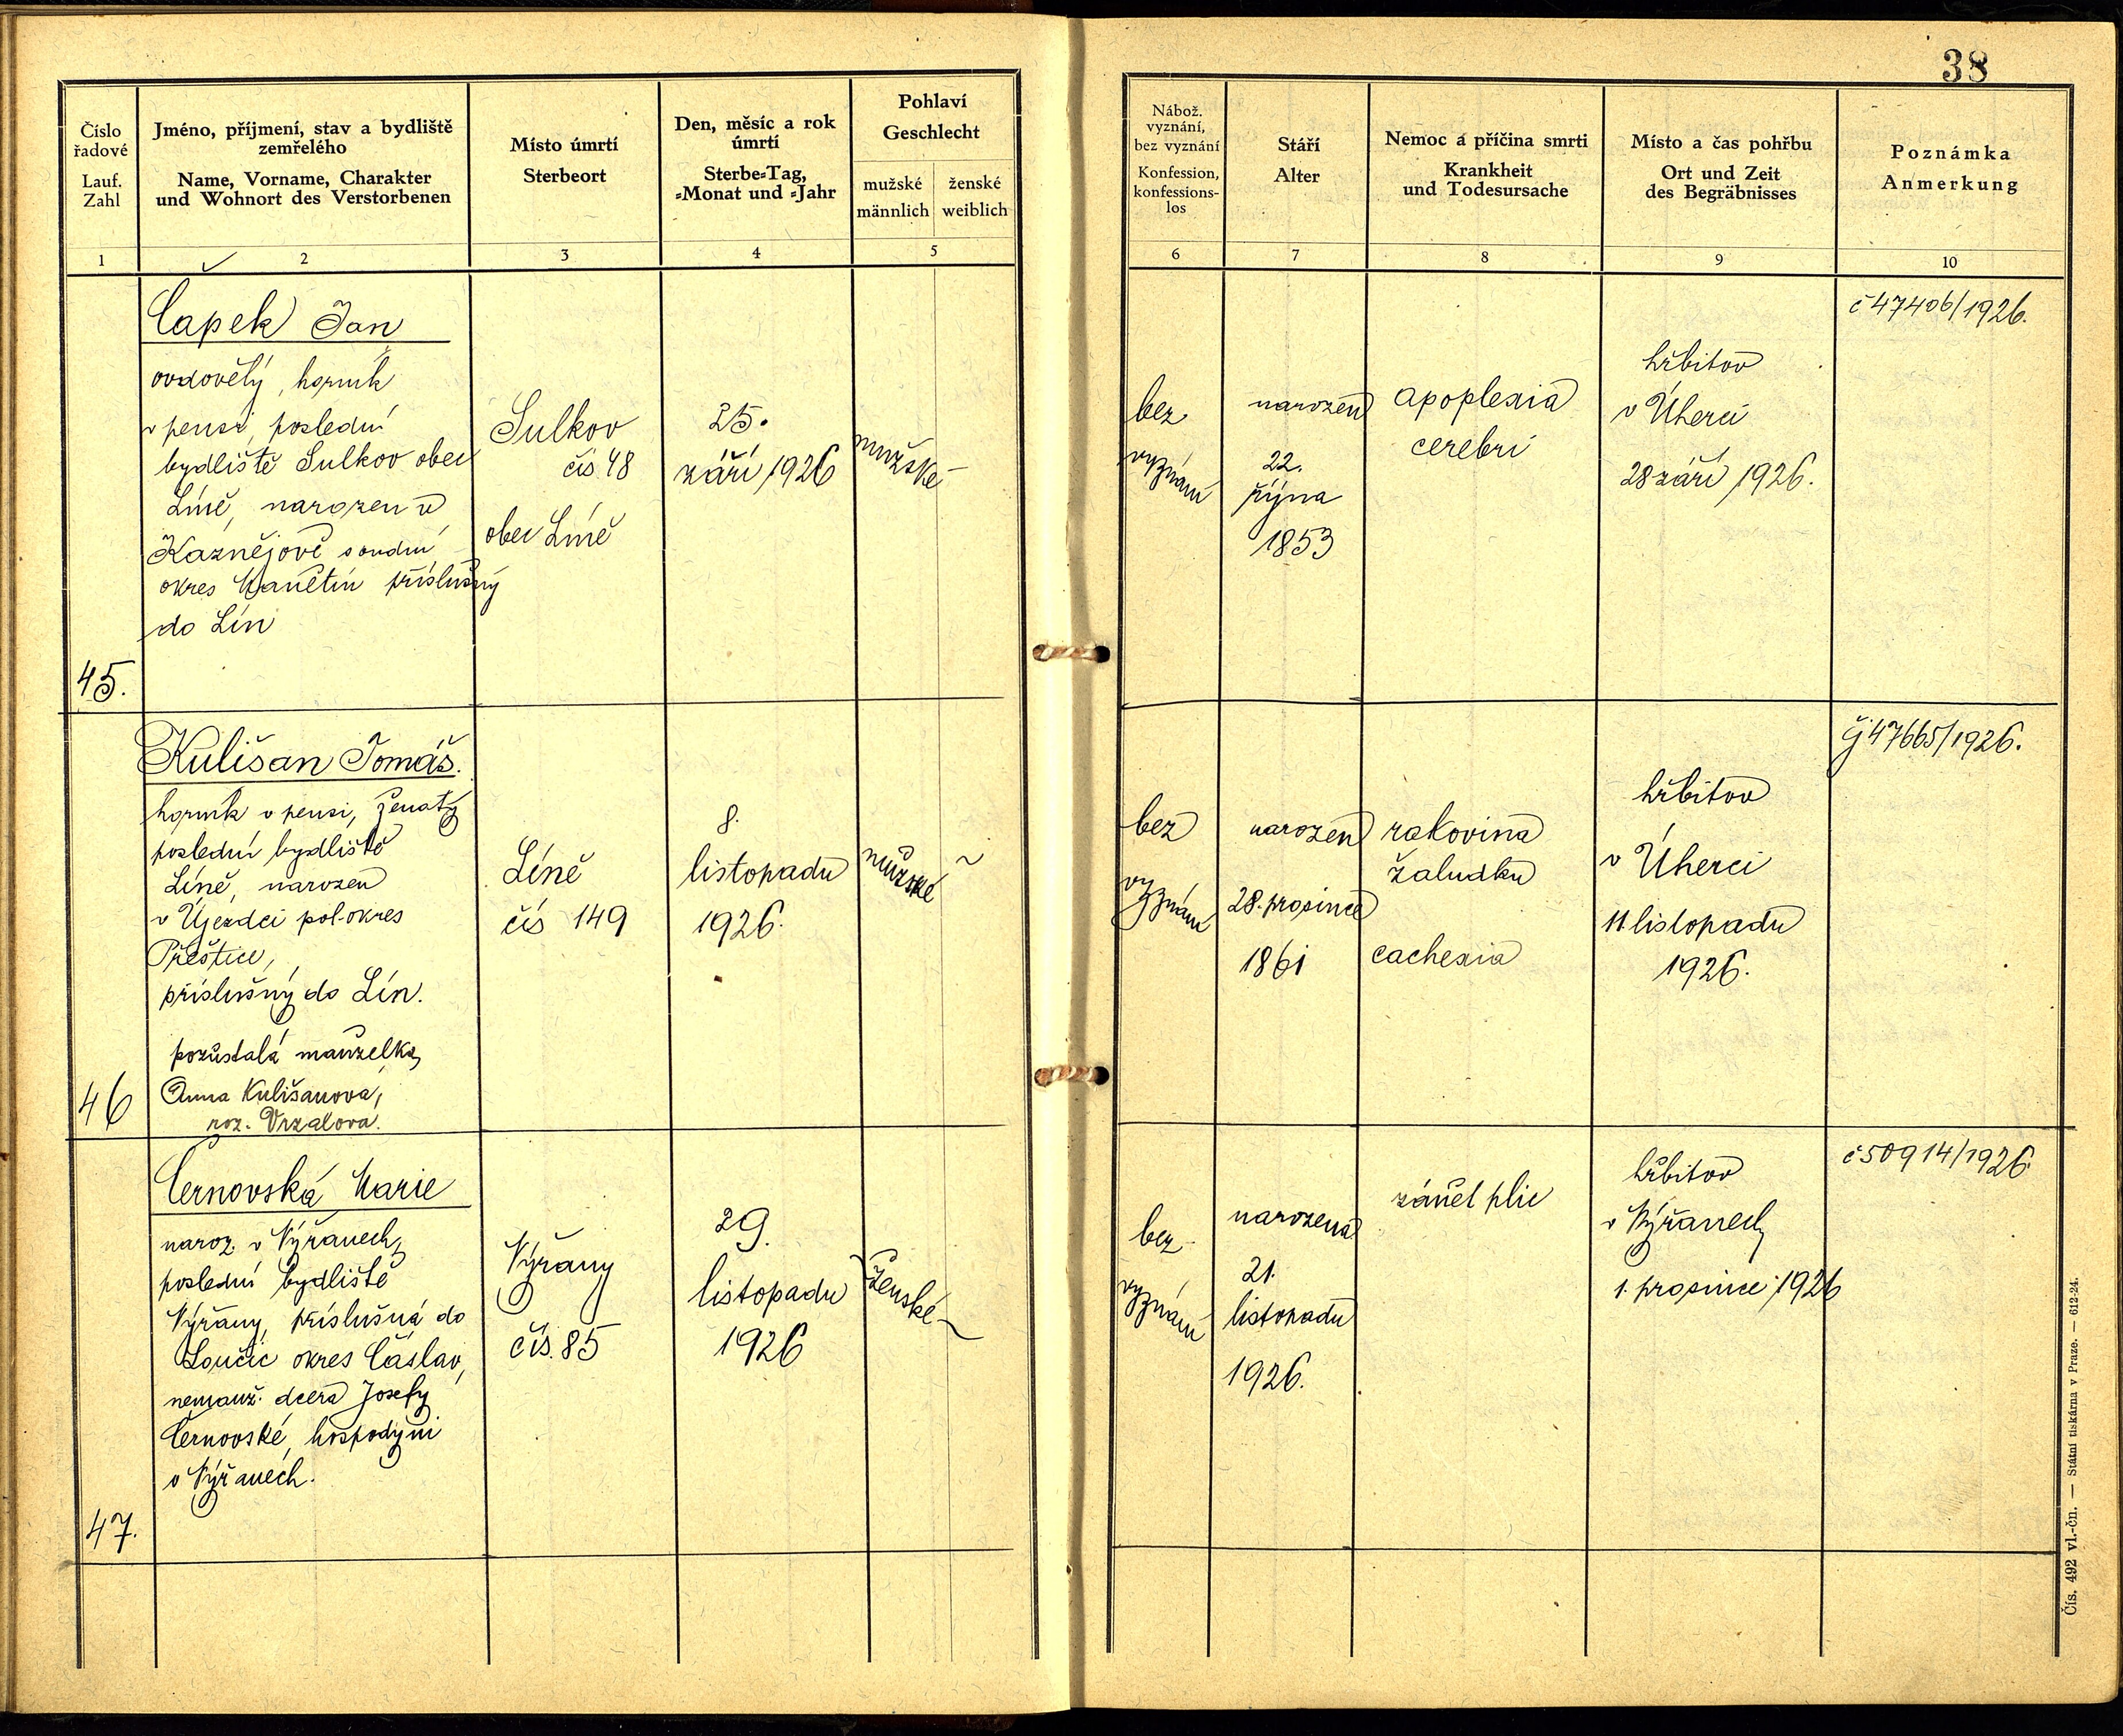 38
Číslo
řadové
Lauf.
Zahl
Jméno, příjmení, stav a bydliště
zemřelého
Name, Vorname, Charakter
und Wohnort des Verstorbenen
Místo úmrtí
Sterbeort
Den, měsíc a rok
úmrtí
Sterbe-Tag,
-Monat und -Jahr
Pohlaví
Geschlecht
mužské
männlich
ženské
weiblich
Nábož.
vyznání,
bez vyznání
Konfession,
konfessions-
los
Stáří
Alter
Nemoc a příčina smrti
Krankheit
und Todesursache
Místo a čas pohřbu
Ort und Zeit
des Begräbnisses
Poznámka
Anmerkung
1
2
3
4
5
6
7
8
9
10
45.
Čapek Jan
ovdovělý, horník
v pensi, poslední
bydliště Sulkov obec
Líně, narozen v
Kaznějově soudní
okres Manětín příslušný
do Lín
Sulkov
čís 48
obec Líně
25.
září 1926
mužské
bez
vyznání
narozen
22.
října
1853
apoplexia
cerebri
hřbitov
v Úherci
28 září 1926.
č 47406/1926.
46
Kulišan Tomáš.
horník v pensi, ženatý
poslední bydliště
Líně, narozen
v Újezdci pol. okres
Přeštice,
příslušný do Lín.
pozůstalá manželka,
Anna Kulišanova,
roz. Vrzalova.
Líně
čís 149
8.
listopadu
1926.
mužské
bez
vyznání
narozen
28. prosince
1861
rakovina
žaludku
cachexia
hřbitov
v Úherci
11 listopadu
1926.
čj 47665/1926.
47.
Černovská Marie
naroz. v Nýřanech,
poslední bydliště
Nýřany, příslušná do
Loučic okres Čáslav,
nemanž. dcera Josefy
Černovské, hospodyni
v Nýřanech.
Nýřany
čís. 85
29.
listopadu
1926
ženské
bez
vyznání
narozena
21.
listopadu
1926.
zánět plic
hřbitov
v Nýřanech
1. prosince 1926
č 50914/1926
Čís. 492 vl.-čn. — Státní tiskárna v Praze. — 612-24.